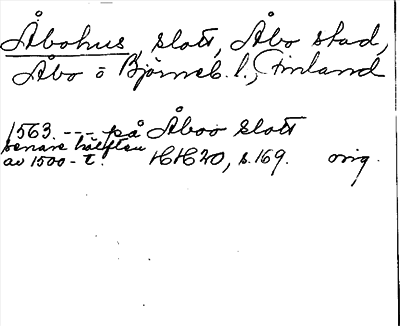 Åbohus, slott, Åbo stad,
Åbo o Björneb. l., Finland
1563. --- på Åboo Slott
senare hälften
av 1500-t. HH 20, s. 169. orig.